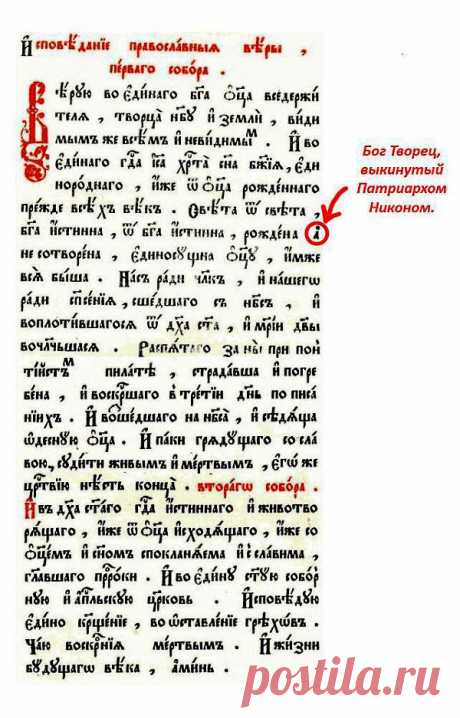 И҆сповѣ́данїе правосла́вныѧ вѣ́ры ,
пе́рваго собо́ра .
Вѣ́рꙋю во є҆ди́наго бг҃а ѻ҆ц҃а̀ вседержи́
телѧ , творца̀ нб҃ꙋ и҆ землѝ , ви́ди
мымъ же всѣ́мъ и҆ неви́димымъ . И҆ во
є҆ди́наго гд҃а і҆с҃а хрⷭ҇та̀ сн҃а бж҃їѧ , є҆ди
норо́днаго , и҆́же ѿ ѻ҆ц҃а̀ рожде́ннаго
пре́жде всѣ́хъ вѣ́къ . Свѣ́та ѿ свѣ́та ,
бг҃а и҆́стинна , ѿ бг҃а и҆́стинна , рожде́на а҆̀
не сотворе́на , є҆диносꙋ́щна ѻ҆ц҃ꙋ̀ , и҆́мже
всѧ̑ бы́ша . На́съ ра́ди чл҃къ , и҆ на́шегѡ
ра́ди сп҃се́нїѧ , сше́дшаго съ нб҃съ , и҆
воплоти́вшагосѧ ѿ дх҃а ст҃а , и҆ мр҃і́и дв҃ы
вочл҃чьшасѧ . Распѧ́таго за ны̀ при пон
ті́йстѣмъ пила́тѣ , страда́вша и҆ погре
бе́на , и҆ воскр҃шаго в тре́тїи дн҃ь по писа́
нїихъ . И҆ воше́дшаго на нб҃са̀ , и҆ сѣдѧ́ща
ѡ҆деснꙋ́ю ѻ҆ц҃а̀ . И҆ па́ки грѧдꙋ́щаго со сла́
вою , сꙋди́ти живы́мъ и҆ ме́ртвымъ , є҆гѡ́ же
црⷭ҇твїю нѣ́сть конца̀ . втора́гѡ собо́ра .
И҆ въ дх҃а ст҃а́го гд҃а и҆́стиннаго и҆ животво
рѧ́щаго , и҆́же ѿ ѻ҆ц҃а̀ и҆сходѧ́щаго , и҆́же со
ѻ҆ц҃е́мъ и҆ сн҃омъ спокланѧ́ема и҆ с сла́вима ,
гл҃авшаго прⷪ҇ро́ки . И҆ во є҆ди́нꙋ ст҃ꙋ́ю собо́р
нꙋю и҆ а҆пⷭ҇льскꙋю цр҃ковь . И҆сповѣ́дꙋю
є҆ди́но крⷭ҇ще́нїе , во ѡ҆ставле́нїе грѣхѡ́въ .
Ча́ю воскрⷭ҇нїѧ ме́ртвымъ . И҆ жи́зни
бꙋ́дꙋщагѡ вѣ́ка , а҆ми́нь .
Бог Творец,
выкинутый
Патриархом
Никоном.
postila.ru